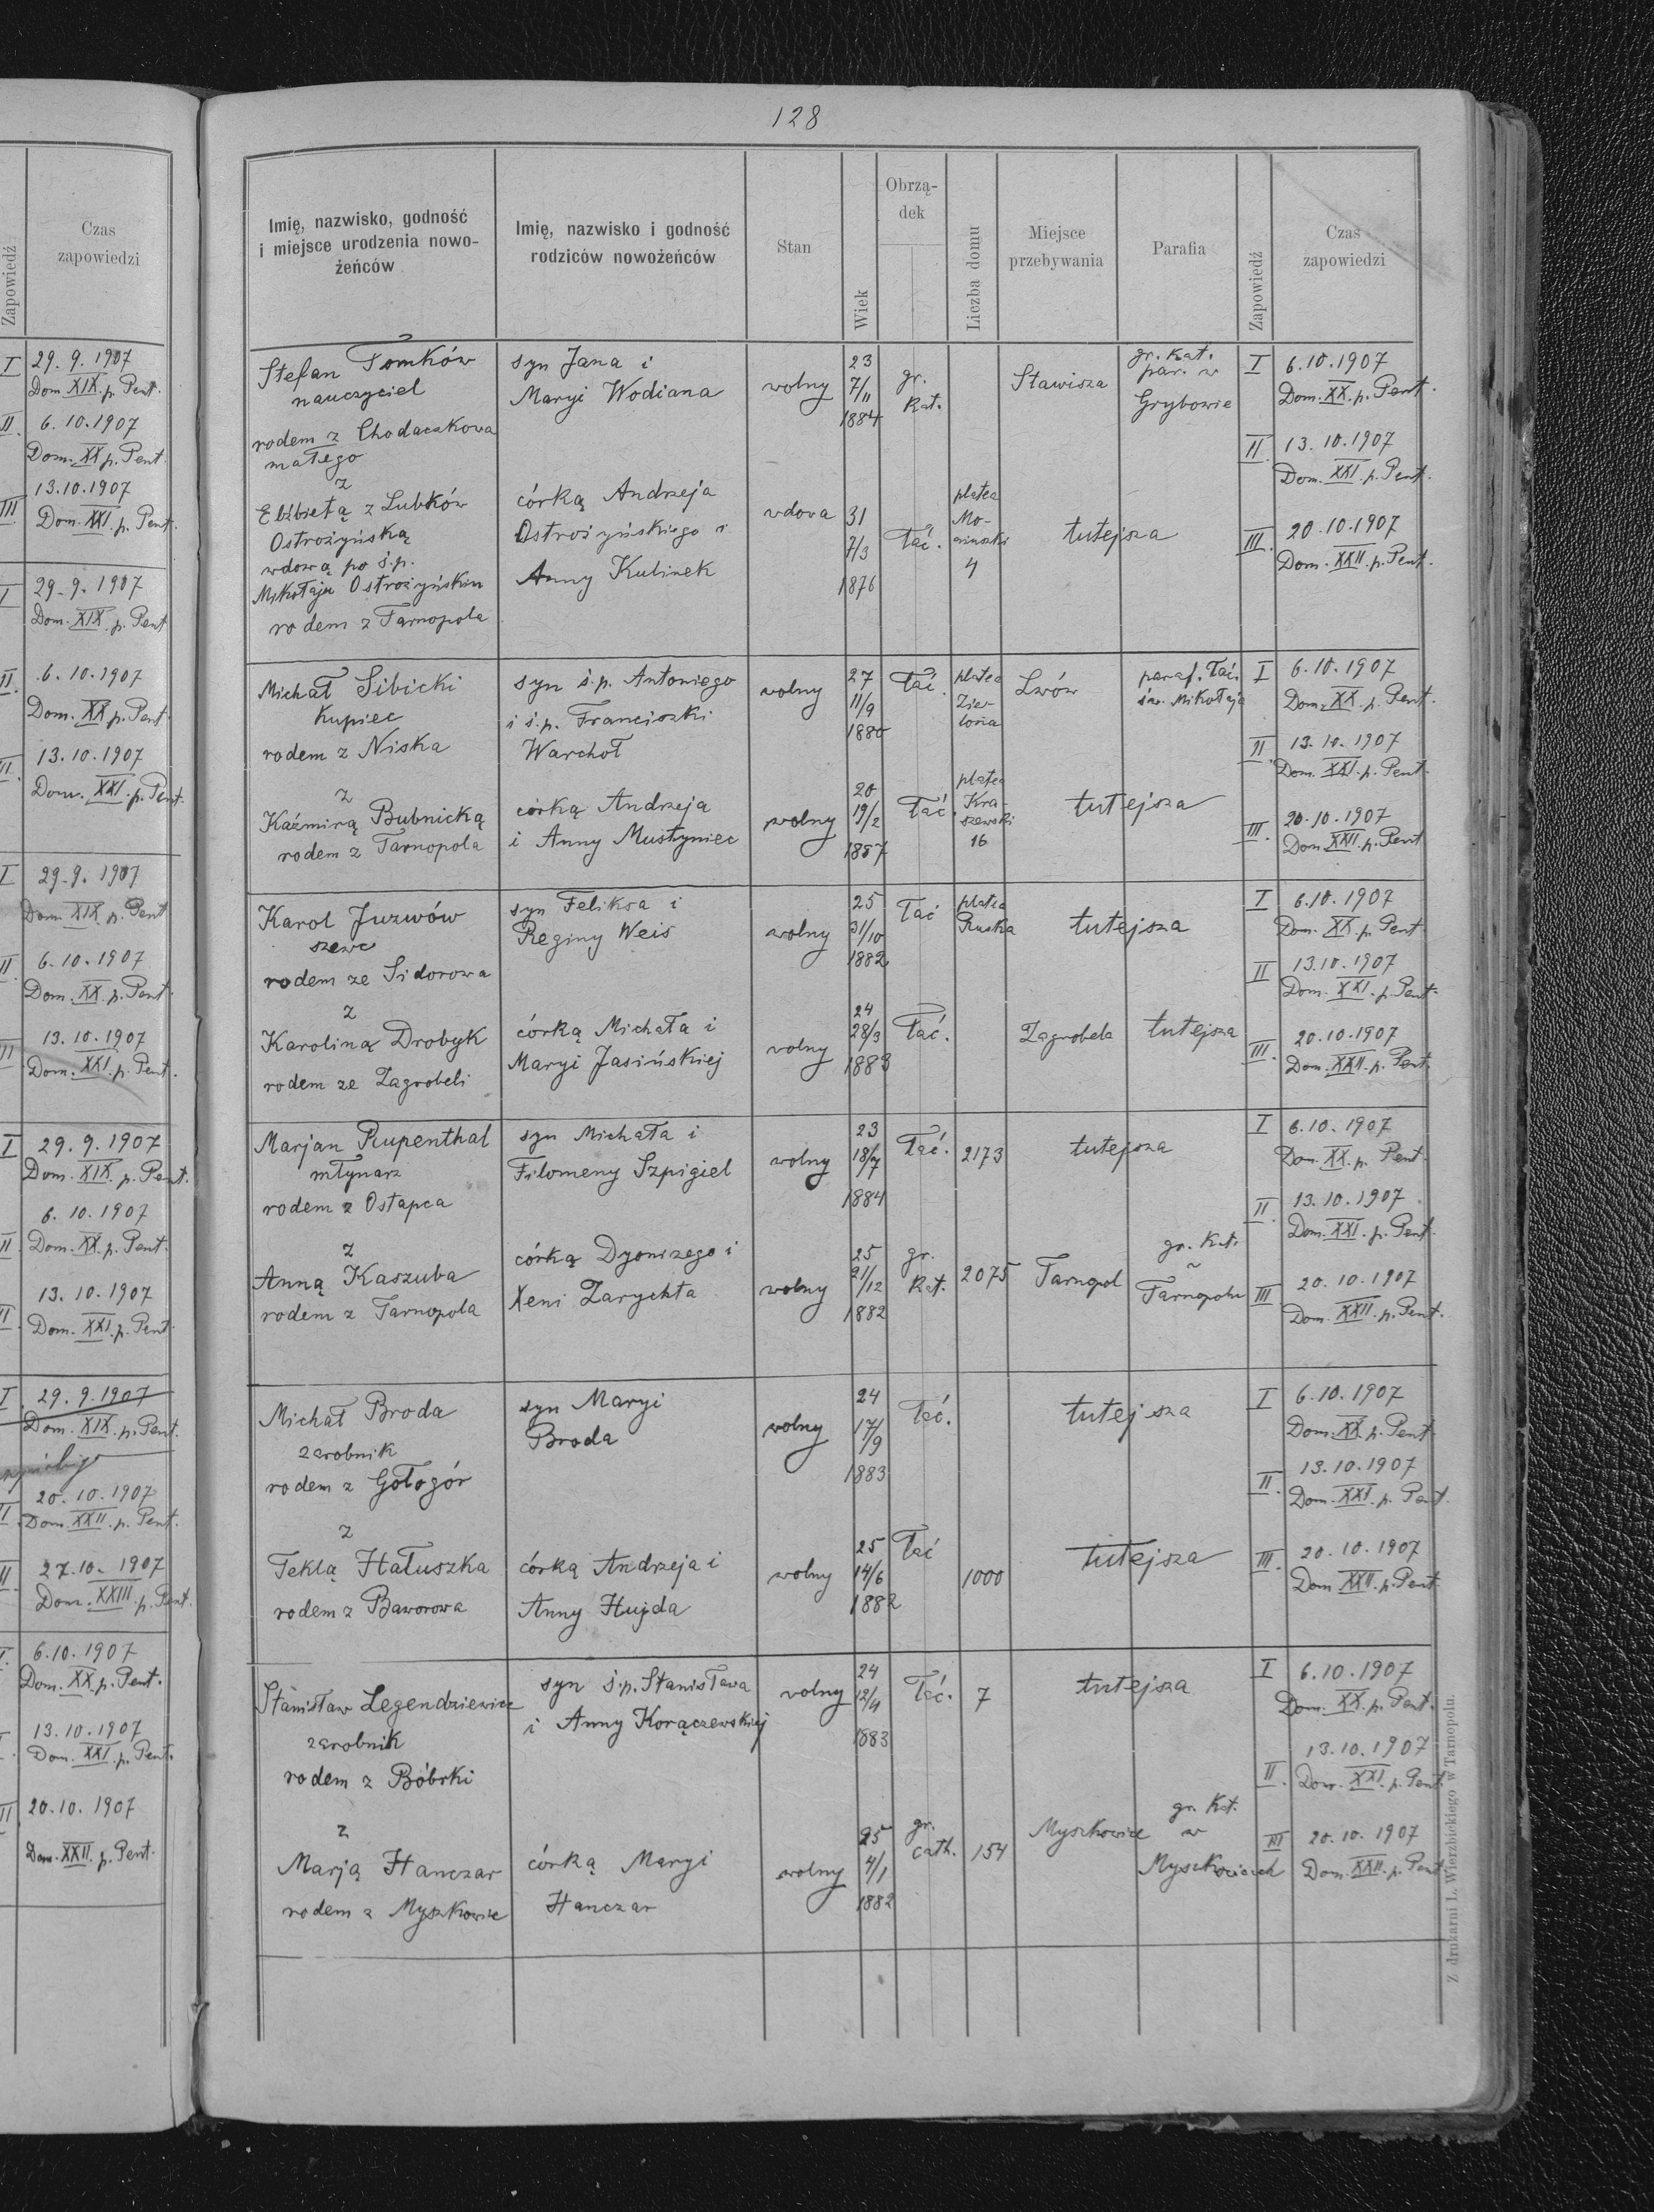 128
Zapowiedź
Czas
zapowiedzi
I 29. 9. 1907
Dom. XIX. p. Pent.
II. 6. 10. 1907
Dom. XX p. Pent.
13.10.1907
III Dom. XXI. p. Pent.
I 29. 9. 1907
Dom. XIX. p. Pent
II. 6. 10. 1907
Dom. XX p. Pent.
13. 10. 1907
Dom. XXI. p. Pent.
I 29. 9. 1907
Dom. XIX p. Pent
II 6. 10. 1907
Dom. XX. p. Pent.
13. 10. 1907
III Dom. XXI. p. Pent.
I 29. 9. 1907
Dom. XIX. p. Pent.
6. 10. 1907
II Dom. XX. p. Pent.
13. 10. 1907
Dom. XXI. p. Pent.
I 29. 9. 1907
Dom. XIX. p. Pent.
20. 10. 1907
Dom. XXII. p. Pent.
27. 10. 1907
Dom. XXIII. p. Pent.
6. 10. 1907
Dom. XX. p. Pent.
13. 10. 1907
Dom. XXI. p. Pent.
20. 10. 1907
Dom. XXII. p. Pent.
Imię, nazwisko, godność
i miejsce urodzenia nowo-
żeńców
Imię, nazwisko i godność
rodziców nowożeńców
Stan
Wiek
Obrzą-
dek
Liczba domu
Miejsce
przebywania
Parafia
Zapowiedź
Czas
zapowiedzi
Stefan Tomków
nauczyciel
rodem z Chodaczkowa
małego
syn Jana i
Maryi Wodiana
wolny
23
7/11
1884
gr.
kat.
Stawisza
gr. kat.
par. w
Grybowie
I 6. 10. 1907
Dom. XX. p. Pent.
II. 13. 10. 1907
Dom. XXI. p. Pent.
z
Elżbietą z Lubków
Ostrożyńską
wdową po ś.p.
Mikołaju Ostrożyńskim
rodem z Tarnopola
córką Andrzeja
Ostrożyńskiego i
Anny Kulinek
wdowa
31
7/3
1876
łać.
platea
Mo-
niuszki
4
tutejsza
III. 20. 10. 1907
Dom. XXII. p. Pent.
Michał Sibicki
Kupiec
rodem z Niska
syn ś.p. Antoniego
i ś.p. Franciszki
Warchoł
wolny
27
11/9
1880
łać.
platea
Zie-
lona
Lwów
paraf. łać.
św. Mikołaja
I 6. 10. 1907
Dom. XX. p. Pent.
II. 13. 10. 1907
Dom. XXI. p. Pent.
z
Kaźmirą Bubnicką
rodem z Tarnopola
córką Andrzeja
i Anny Mustyniec
wolny
20
19/2
1887
łać.
platea
Kra-
szewski
16
tutejsza
III. 20. 10. 1907
Dom. XXII. p. Pent
Karol Juzwów
szewc
rodem ze Sidorowa
syn Feliksa i
Reginy Weis
wolny
25
31/10
1882
łać
platea
Ruska
tutejsza
I 6. 10. 1907
Dom. XX p. Pent.
II 13. 10. 1907
Dom. XXI. p. Pent.
z
Karoliną Drobyk
rodem ze Zagrobeli
córką Michała i
Maryi Jasińskiej
wolny
24
28/3
1883
łać.
Zagrobela
tutejsza
III. 20. 10. 1907
Dom. XXII. p. Pent.
Marjan Rupenthal
młynarz
rodem z Ostapca
syn Michała i
Filomeny Szpigiel
wolny
23
18/7
1884
łać.
2173
tutejsza
I 6. 10. 1907
Dom. XX. p. Pent.
II. 13. 10. 1907
Dom. XXI. p. Pent.
z
Anną Kaszuba
rodem z Tarnopola
córką Dyonizego i
Xeni Zarychta
wolny
25
21/12
1882
gr.
kat.
2075
Tarnopol
gr. kat.
Tarnopolu
III 20. 10. 1907
Dom. XXII. p. Pent.
Michał Broda
zarobnik
rodem z Gołogór
syn Maryi
Broda
wolny
24
17/9
1883
łać.
tutejsza
I 6. 10. 1907
Dom. XX. p. Pent.
II. 13. 10. 1907
Dom. XXI. p. Pent.
z
Teklą Hałuszka
rodem z Baworowa
córką Andrzeja i
Anny Hujda
wolny
25
14/6
1882
łać
1000
tutejsza
III. 20. 10. 1907
Dom XXII. p. Pent.
Stanisław Legendziewicz
zarobnik
rodem z Bóbrki
syn ś.p. Stanisława
i Anny Korączewskiej
wolny
24
12/4
1883
łać.
7
tutejsza
I 6. 10. 1907
Dom. XX. p. Pent.
II. 13. 10. 1907
Dom. XXI. p. Pent.
z
Marją Hanczar
rodem z Myszkowic
córką Maryi
Hanczar
wolny
25
4/1
1882
gr.
cath.
154
Myszkowice
gr. kat.
w
Myszkowicach
III 20. 10. 1907
Dom. XXII. p. Pent.
Z drukarni L. Wierzbickiego w Tarnopolu.